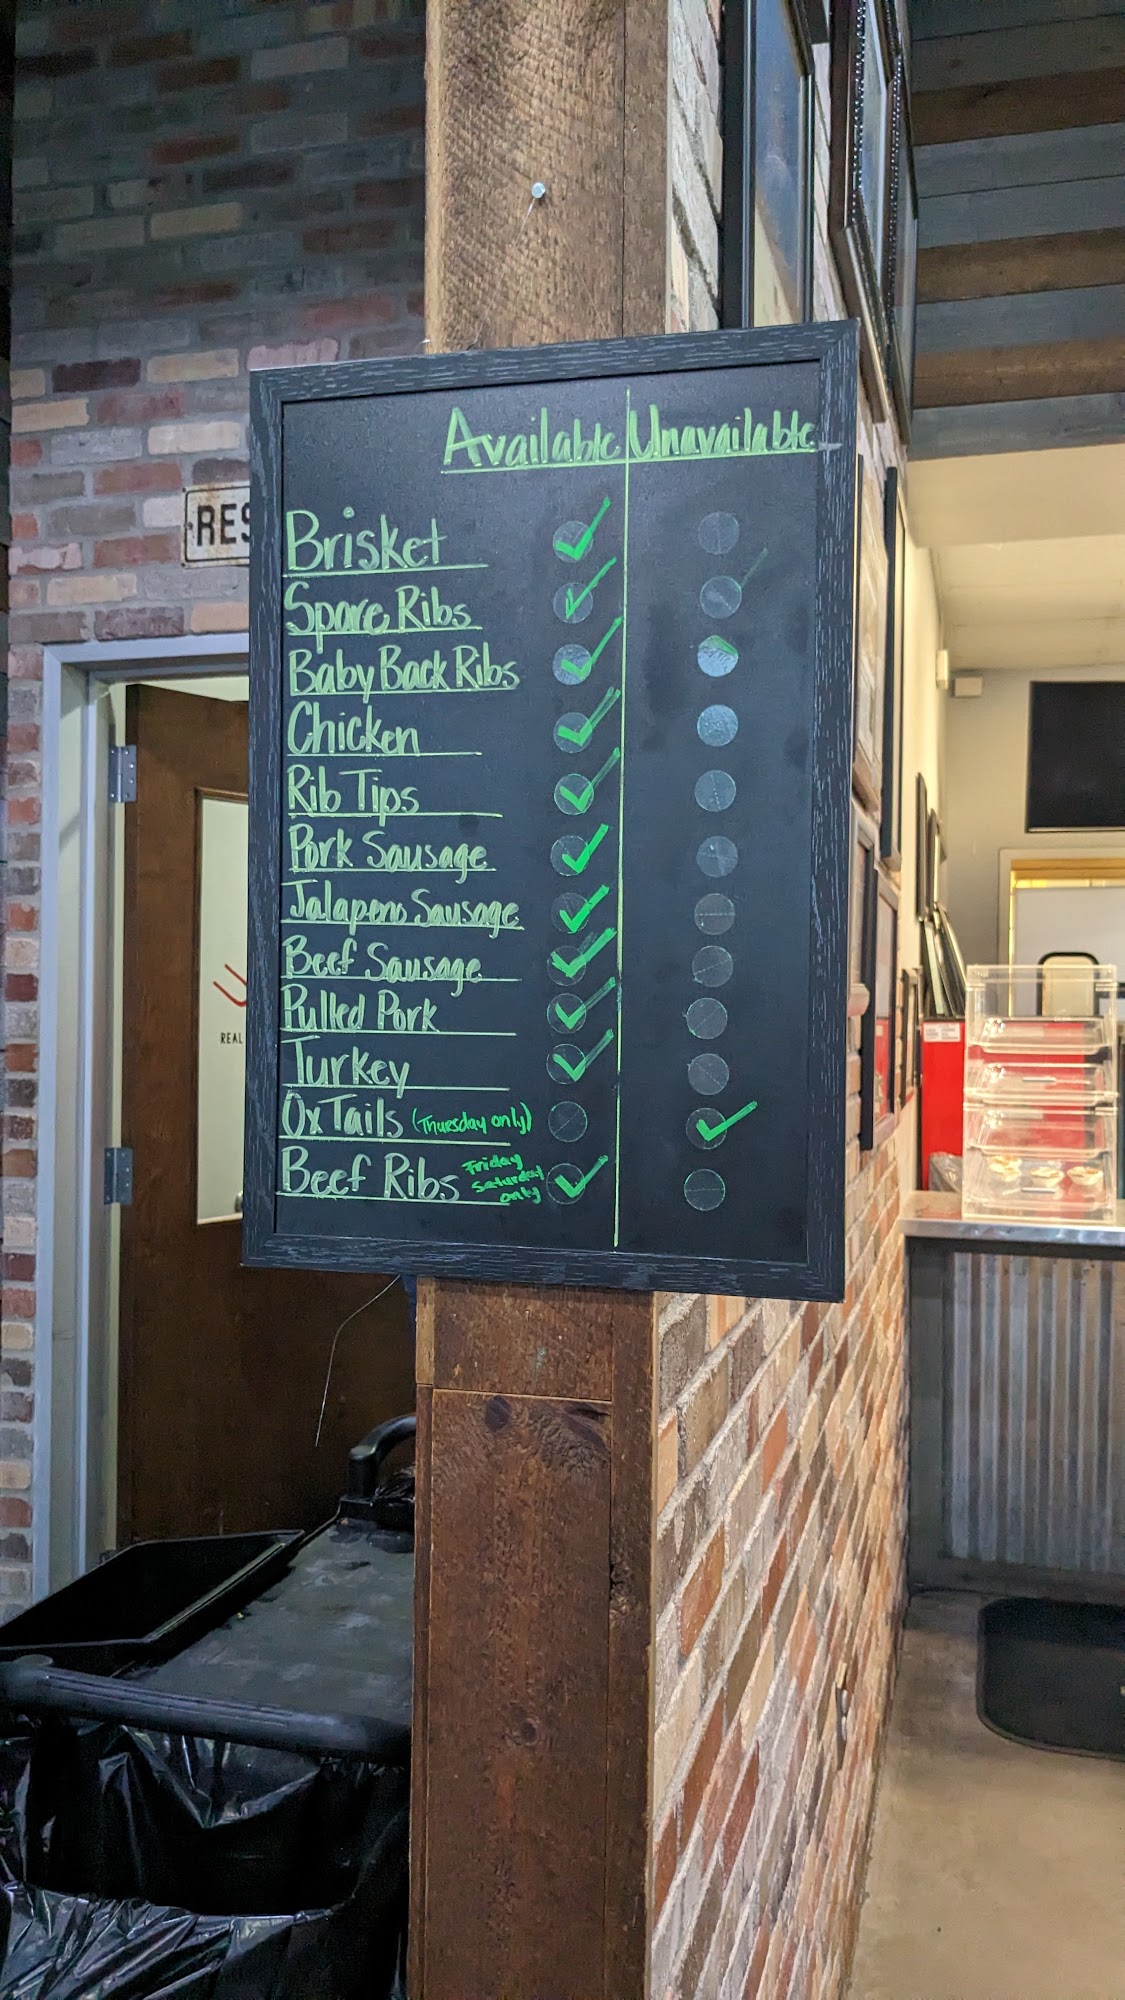 Available Unavailable
RES
Brisket
Spare Ribs
Baby Back Ribs
Chicken
Rib Tips
Pork Sausage
Jalapeno Sausage
Beef Sausage
Pulled Pork
REAL
Turkey
Ox Tails (Thursday only)
Beef Ribs Friday
Saturday
only